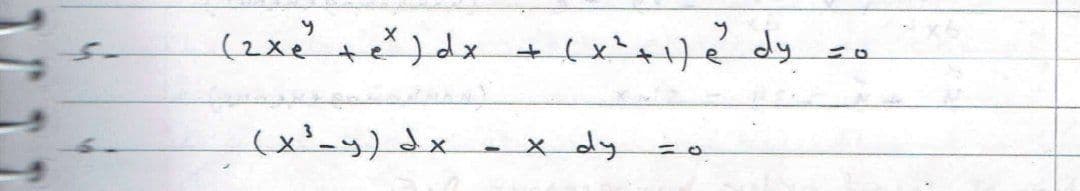 5- (2xe^y + e^x) dx + (x²+1) e^y dy = 0
6- (x³-y) dx - x dy = 0